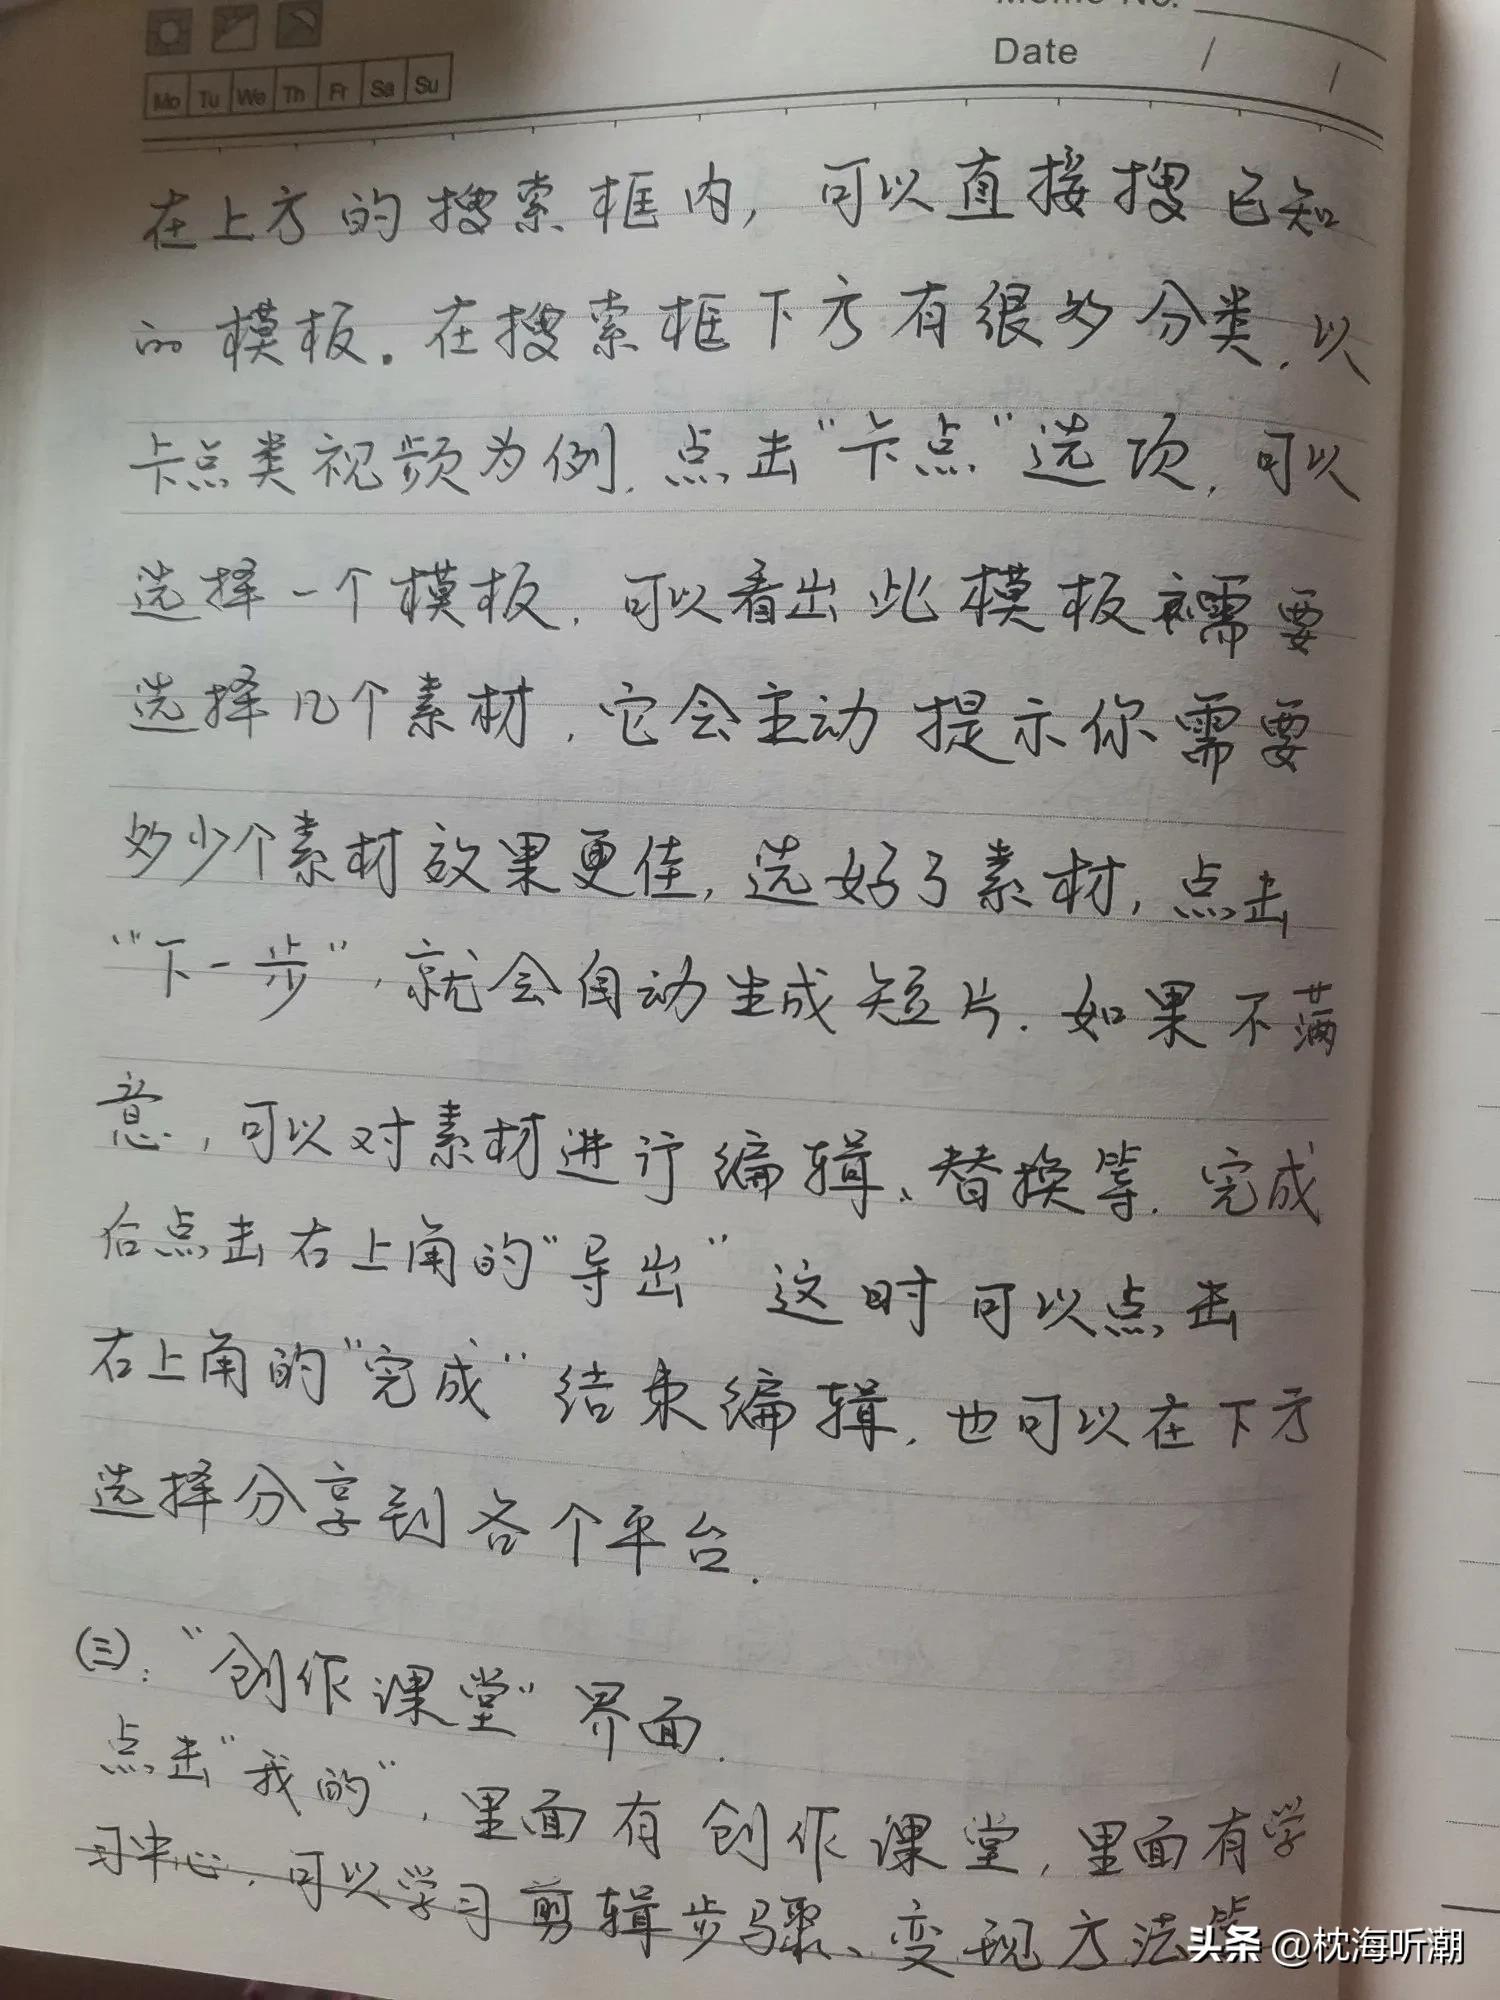 Memo No.
Date / /
Mo Tu We Th Fr Sa Su
在上方的搜索框内，可以直接搜已知
的模板。在搜索框下方有很多分类，以
卡点类视频为例，点击“卡点”选项，可以
选择一个模板，可以看出此模板需要
选择几个素材，它会主动提示你需要
多少个素材效果更佳，选好了素材，点击
“下一步”，就会自动生成短片．如果不满
意，可以对素材进行编辑、替换等．完成
后点击右上角的“导出”这时可以点击
右上角的“完成”结束编辑，也可以在下方
选择分享到各个平台．
(三)：“创作课堂”界面．
点击“我的”，里面有创作课堂，里面有学
习中心，可以学习剪辑步骤、变现方法等
头条 @枕海听潮